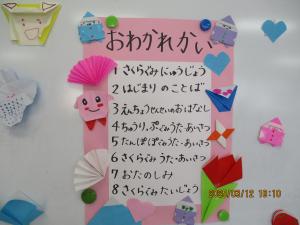 おわかれかい
1 さくらぐみにゅうじょう
2 はじまりのことば
3 えんちょうせんせいのおはなし
4 ちゅうりっぷぐみうた・あいさつ
5 たんぽぽぐみうた・あいさつ
6 さくらぐみうた・あいさつ
7 おたのしみ
8 さくらぐみたいじょう